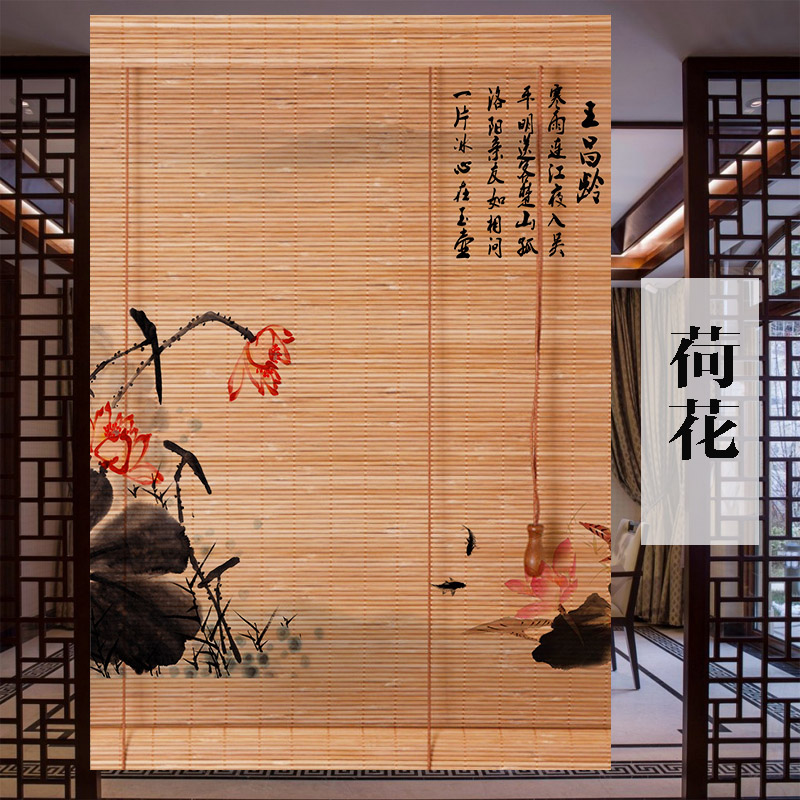 王昌龄
寒雨连江夜入吴
平明送客楚山孤
洛阳亲友如相问
一片冰心在玉壶
荷花